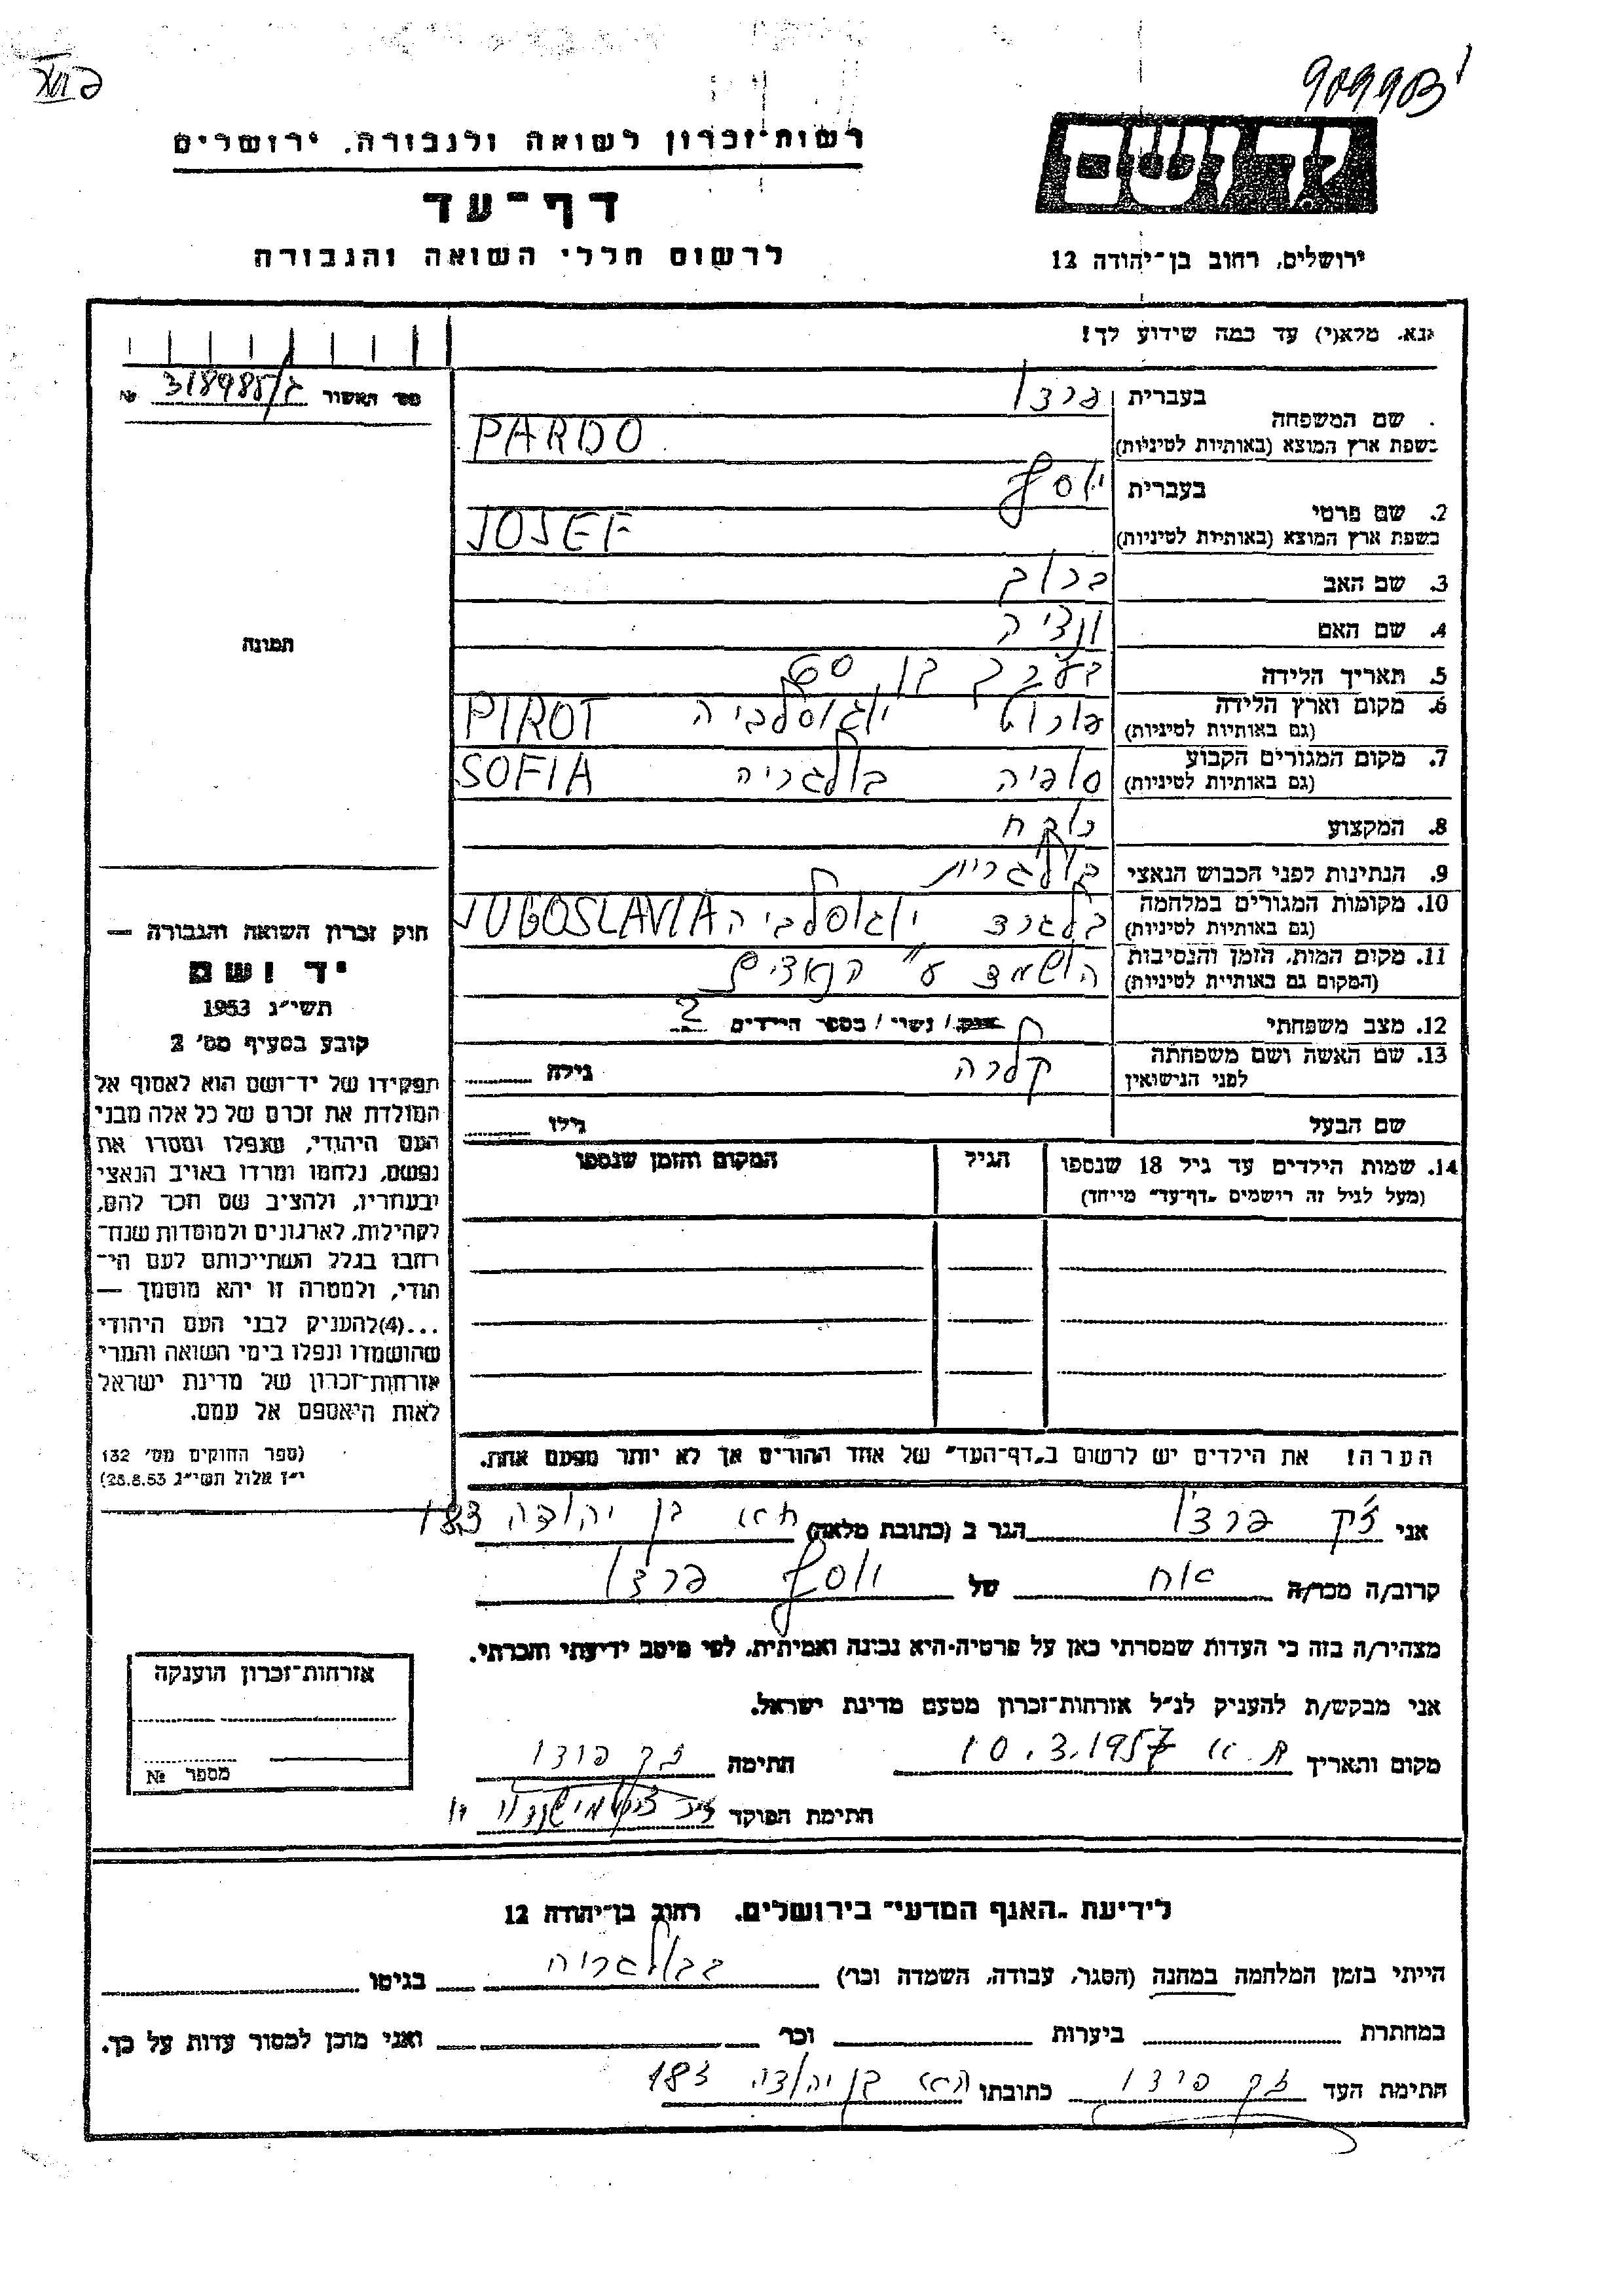 909903
רשות־זכרון לשואה ולגבורה, ירושלים
דף־עד
לרשום חללי השואה והגבורה
ירושלים, רחוב בן־יהודה 12
נא, מלא(י) עד כמה שידוע לך!
מס׳ האשור ג/318985 №
בעברית פרדו
שם המשפחה
בשפת ארץ המוצא (באותיות לטיניות) PARDO
בעברית יוסף
2. שם פרטי
בשפת ארץ המוצא (באותיות לטיניות) JOSEF
3. שם האב ברוך
4. שם האם ונציה
5. תאריך הלידה בערך בן 60
6. מקום וארץ הלידה פירוט יוגוסלביה PIROT
(גם באותיות לטיניות)
7. מקום המגורים הקבוע סופיה בולגריה SOFIA
(גם באותיות לטיניות)
8. המקצוע רוקח
9. הנתינות לפני הכבוש הנאצי בולגרית
10. מקומות המגורים במלחמה בלגרד יוגוסלביה JUGOSLAVIA
(גם באותיות לטיניות)
11. מקום המות, הזמן והנסיבות הושמד ע"י הנאצים
(המקום גם באותיות לטיניות)
12. מצב משפחתי רווק / נשוי / מספר הילדים 2
13. שם האשה ושם משפחתה קלרה גילה
לפני הנישואין
שם הבעל גילו
14. שמות הילדים עד גיל 18 שנספו הגיל המקום והזמן שנספו
(מעל לגיל זה רושמים „דף־עד" מיוחד)
הערה! את הילדים יש לרשום ב„דף־העד" של אחד ההורים אך לא יותר מפעם אחת.
תמונה
חוק זכרון השואה והגבורה —
יד ושם
תשי״ג 1953
קובע בסעיף מס׳ 2
תפקידו של יד־ושם הוא לאסוף אל
המולדת את זכרם של כל אלה מבני
העם היהודי, שנפלו ומסרו את
נפשם, נלחמו ומרדו באויב הנאצי
ובעוזריו, ולהציב שם וזכר להם,
לקהילות, לארגונים ולמוסדות שנח־
רבו בגלל השתייכותם לעם הי־
הודי, ולמטרה זו יהא מוסמך —
...(4) להעניק לבני העם היהודי
שהושמדו ונפלו בימי השואה והמרי
אזרחות־זכרון של מדינת ישראל
לאות היאספם אל עמם.
(ספר החוקים מס׳ 132
י״ז אלול תשי״ג 28.8.53)
אני ז'ק פרדו הגר ב (כתובת מלאה) ת"א בן יהודה 183
קרוב/ה מכר/ה אח של יוסף פרדו
מצהיר/ה בזה כי העדות שמסרתי כאן על פרטיה־היא נכונה ואמיתית, לפי מיטב ידיעתי והכרתי.
אני מבקש/ת להעניק לנ״ל אזרחות־זכרון מטעם מדינת ישראל.
מקום ותאריך ת"א 10.3.1957 חתימה ז'ק פרדו
חתימת הפוקד
אזרחות־זכרון הוענקה
מספר №
לידיעת „האגף המדעי" בירושלים, רחוב בן־יהודה 12
הייתי בזמן המלחמה במחנה (הסגר, עבודה, השמדה וכו׳) בבולגריה בגיטו
במחתרת ביערות וכו׳ ואני מוכן למסור עדות על כך.
חתימת העד ז'ק פרדו כתובתו ת"א בן יהודה 183